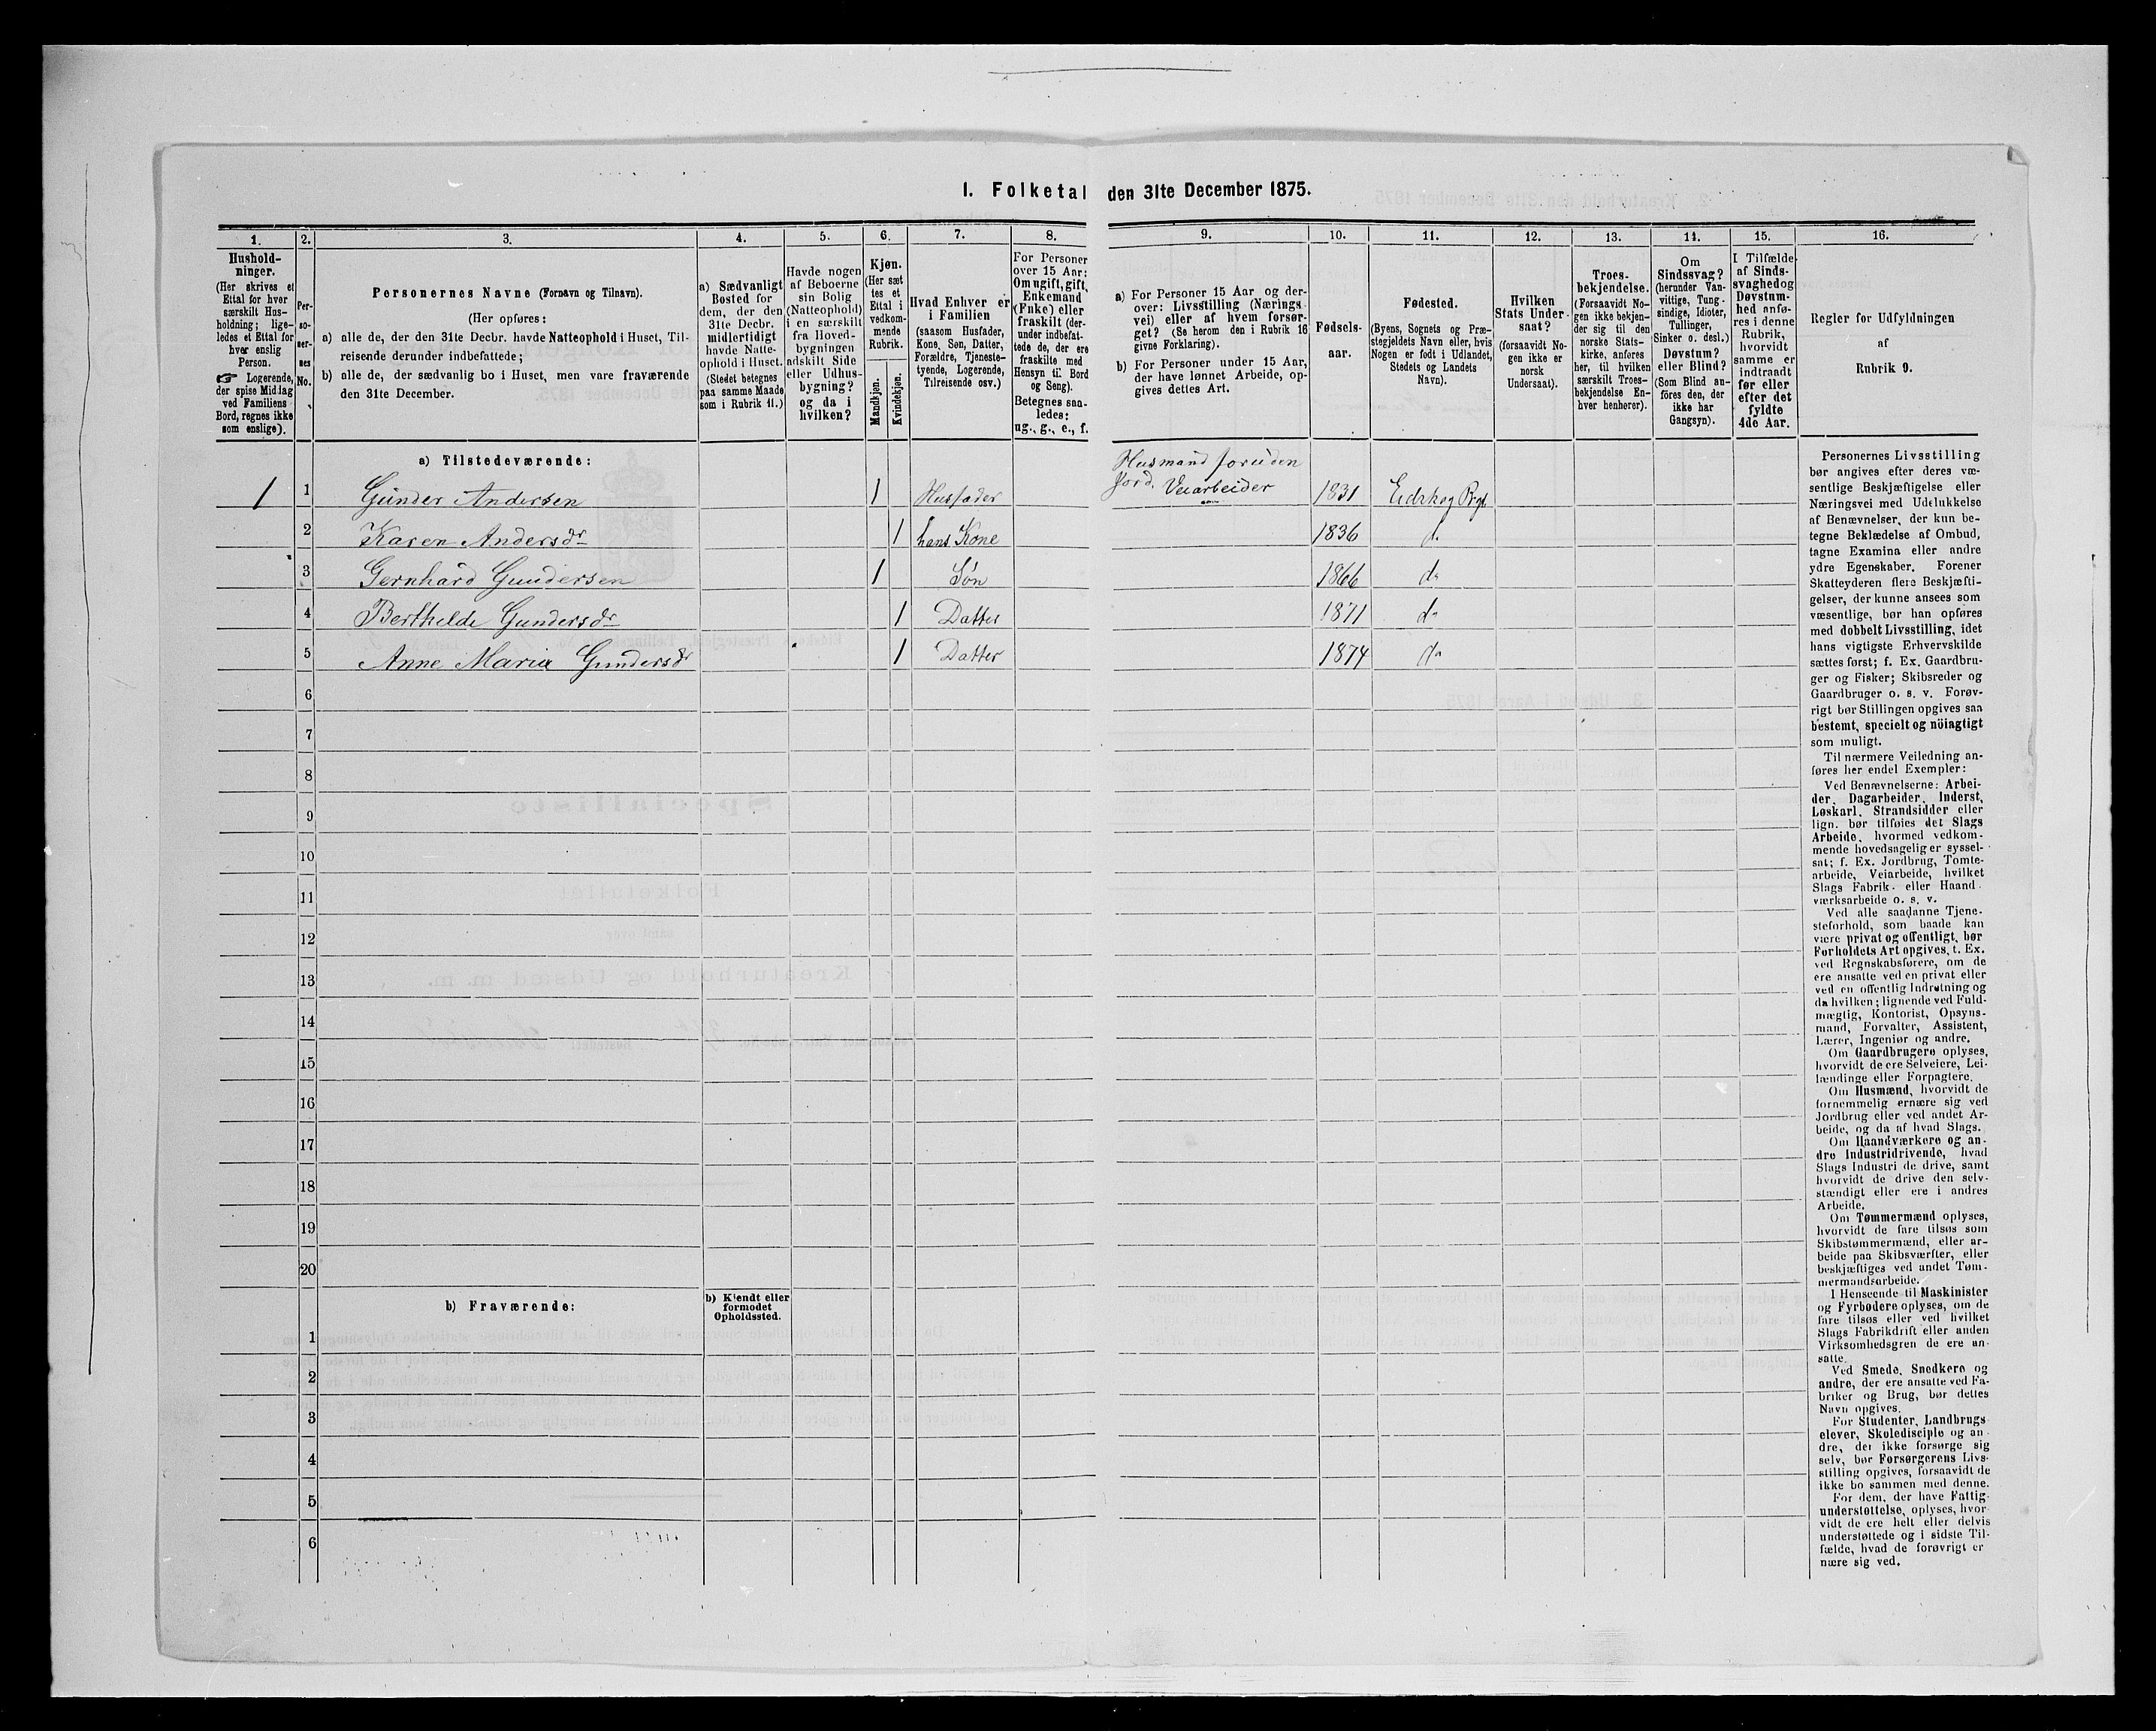 I. Folketal den 31te December 1875.
1. 2. 3. 4. 5. 6. 7. 8. 9. 10. 11. 12. 13. 14. 15. 16.
Hushold-
ninger.
(Her skrives et
Ettal for hver
særskilt Hus-
holdning; lige-
ledes et Ettal for
hver enslig
Person.
☞ Logerende,
der spise Middag
ved Familiens
Bord, regnes ikke
som enslige).
Per-
so-
ner-
nes
No.
Personernes Navne (Fornavn og Tilnavn).
(Her opføres:
a) alle de, der den 31te Decbr. havde Natteophold i Huset, Til-
reisende derunder indbefattede;
b) alle de, der sædvanlig bo i Huset, men vare fraværende
den 31te December.
a) Sædvanligt
Bosted for
dem, der den
31te Decbr.
midlertidigt
havde Natte-
ophold i Huset.
(Stedet betegnes
paa samme Maade
som i Rubrik 11.)
Havde nogen
af Beboerne
sin Bolig
(Natteophold)
i en særskilt
fra Hoved-
bygningen
adskilt Side
eller Udhus-
bygning?
og da i
hvilken?
Kjøn.
(Her sæt
tes et
Ettal i
vedkom-
mende
Rubrik.
Mandkjøn.
Kvindekjøn.
Hvad Enhver er
i Familien
(saasom Husfader,
Kone, Søn, Datter,
Forældre, Tjeneste-
tyende, Logerende,
Tilreisende osv.)
For Personer
over 15 Aar:
Om ugift, gift,
Enkemand
(Enke) eller
fraskilt (der-
under indbefat-
tede de, der ere
fraskilte med
Hensyn til Bord
og Seng).
Betegnes saa-
ledes:
ug., g., e., f.
a) For Personer 15 Aar og der-
over: Livsstilling (Nærings
vei) eller af hvem forsør-
get? (Se herom den i Rubrik 16
givne Forklaring).
b) For Personer under 15 Aar,
der have lønnet Arbeide, op-
gives dettes Art.
Fødsels-
aar.
Fødested.
(Byens, Sognets og Præ-
stegjeldets Navn eller, hvis
Nogen er født i Udlandet,
Stedets og Landets
Navn).
Hvilken
Stats Under-
saat?
(forsaavidt No-
gen ikke er
norsk
Undersaat).
Troes-
bekjendelse.
(Forsaavidt No-
gen ikke bekjen-
der sig til den
norske Stats-
kirke, anføres
her, til hvilken
særskilt Troes-
bekjendelse En-
hver henhører).
Om
Sindssvag?
(herunder Van-
vittige, Tung-
sindige, Idioter,
Tullinger,
Sinker o. desl.)
Døvstum?
eller Blind?
(Som Blind an-
føres den, der
ikke har
Gangsyn).
I Tilfælde
af Sinds-
svaghed og
Døvstum-
hed anfø-
res i denne
Rubrik,
hvorvidt
samme er
indtraadt
før eller
efter det
fyldte
4de Aar.
Regler for Udfyldningen
af
Rubrik 9.
a) Tilstedeværende:
1 1 Gunder Andersen 1 Husfader Husmand foruden Jord. Veiarbeider 1831 Eidskog Prgl
2 Karen Andersdr 1 hans Kone 1836 do
3 Gernhard Gundersen 1 Søn 1866 do
4 Berthelde Gundersdr 1 Datter 1871 do
5 Anne Maria Gundersdr 1 Datter 1874 do
6
7
8
9
10
11
12
13
14
15
16
17
18
19
20
b) Fraværende:
b) Kjendt eller
formodet
Opholdssted.
1
2
3
4
5
6
Personernes Livsstilling
bør angives efter deres væ-
sentlige Beskjæftigelse eller
Næringsvei med Udelukkelse
af Benævnelser, der kun be-
tegne Beklædelse af Ombud,
tagne Examina eller andre
ydre Egenskaber. Forener
Skatteyderen flere Beskjæfti-
gelser, der kunne ansees som
væsentlige, bør han opføres
med dobbelt Livsstilling, idet
hans vigtigste Erhvervskilde
sættes først; f. Ex. Gaardbru-
ger og Fisker; Skibsreder og
Gaardbruger o. s. v. Forøv-
rigt bør Stillingen opgives saa
bestemt, specielt og nöiagtigt
som muligt.
Til nærmere Veiledning an-
føres her endel Exempler:
Ved Benævnelserne: Arbei-
der, Dagarbeider, Inderst,
Løskarl, Strandsidder eller
lign. bør tilføies det Slags
Arbeide, hvormed vedkom-
mende hovedsagelig er syssel-
sat; f. Ex. Jordbrug, Tomte-
arbeide, Veiarbeide, hvilket
Slags Fabrik- eller Haand-
værksarbeide o. s. v.
Ved alle saadanne Tjene-
steforhold, som baade kan
være privat og offentligt, bør
Forholdets Art opgives, t. Ex.
ved Regnskabsførere, om de
ere ansatte ved en privat eller
ved en offentlig Indretning og
da hvilken; lignende ved Fuld-
mægtig, Kontorist, Opsyns-
mand, Forvalter, Assistent,
Lærer, Ingeniør og andre.
Om Gaardbrugere oplyses,
hvorvidt de ere Selveiere, Lei-
lændinge eller Forpagtere.
Om Husmænd, hvorvidt de
fornemmelig ernære sig ved
Jordbrug eller ved andet Ar-
beide, og da af hvad Slags.
Om Haandværkere og an-
dre Industridrivende, hvad
Slags Industri de drive, samt
hvorvidt de drive den selv-
stændigt eller ere i andres
Arbeide.
Om Tømmermænd oplyses,
hvorvidt de fare tilsøs som
Skibstømmermænd, eller ar-
beide paa Skibsværfter, eller
beskjæftiges ved andet Tøm-
mermandsarbeide.
I Henseende til Maskinister
og Fyrbødere oplyses, om de
fare tilsøs eller ved hvilket
Slags Fabrikdrift eller anden
Virksomhedsgren de ere an-
satte.
Ved Smede, Snedkere og
andre, der ere ansatte ved Fa-
briker og Brug, bør dettes
Navn opgives.
For Studenter, Landbrugs
elever, Skoledisciple og an-
dre, der ikke forsørge sig
selv, bør Forsørgerens Livs-
stilling opgives, forsaavidt de
ikke bo sammen med denne.
For dem, der have Fattig-
understøttelse, oplyses, hvor-
vidt de ere helt eller delvis
understøttede og i sidste Til-
fælde, hvad de forøvrigt er
nære sig ved.